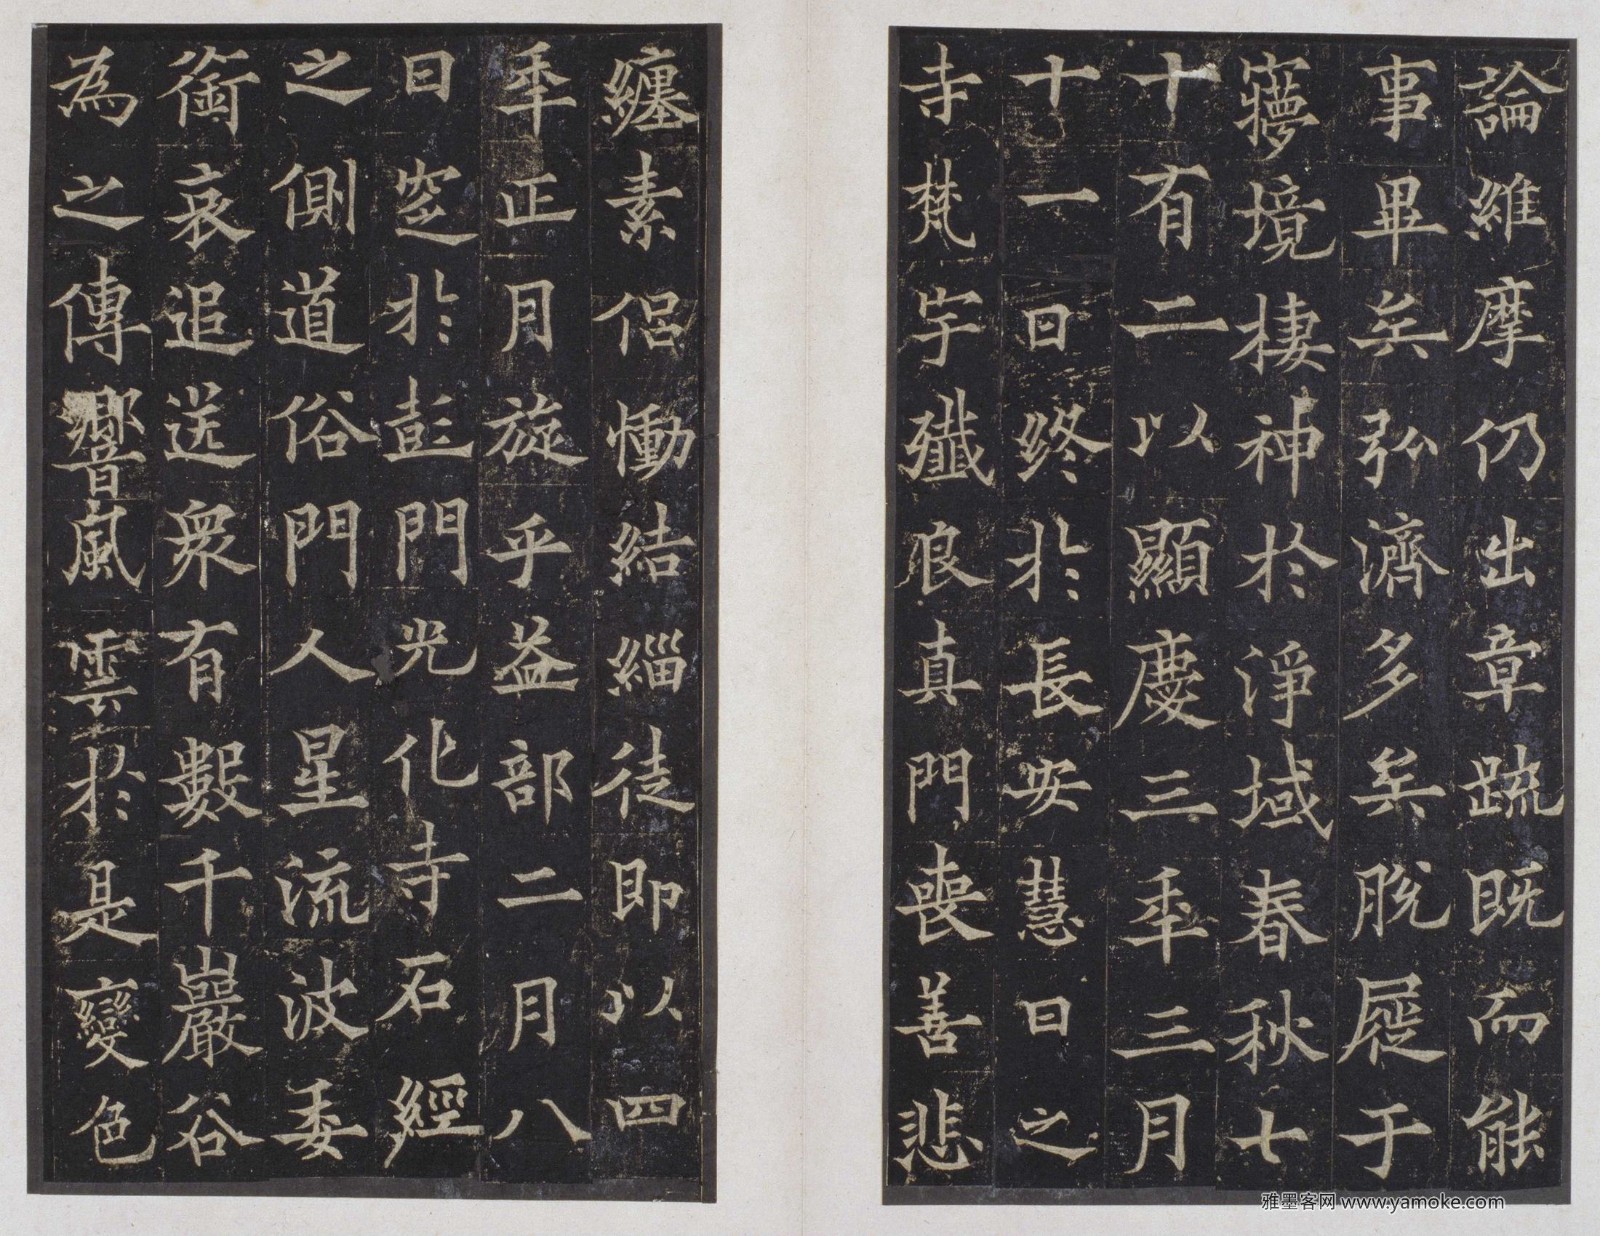 論維摩仍出章疏既而能
事畢矣弘濟多矣脫屣于
寢境棲神於淨域春秋七
十有二以顯慶三年三月
十一日終於長安慧日之
寺梵宇殲良真門喪善悲
纏素侶慟結緇徒即以四
年正月旋乎益部二月八
日窆於彭門光化寺石經
之側道俗門人星流波委
銜哀追送眾有數千巖谷
為之傳響風雲於是變色
雅墨客网 www.yamoke.com